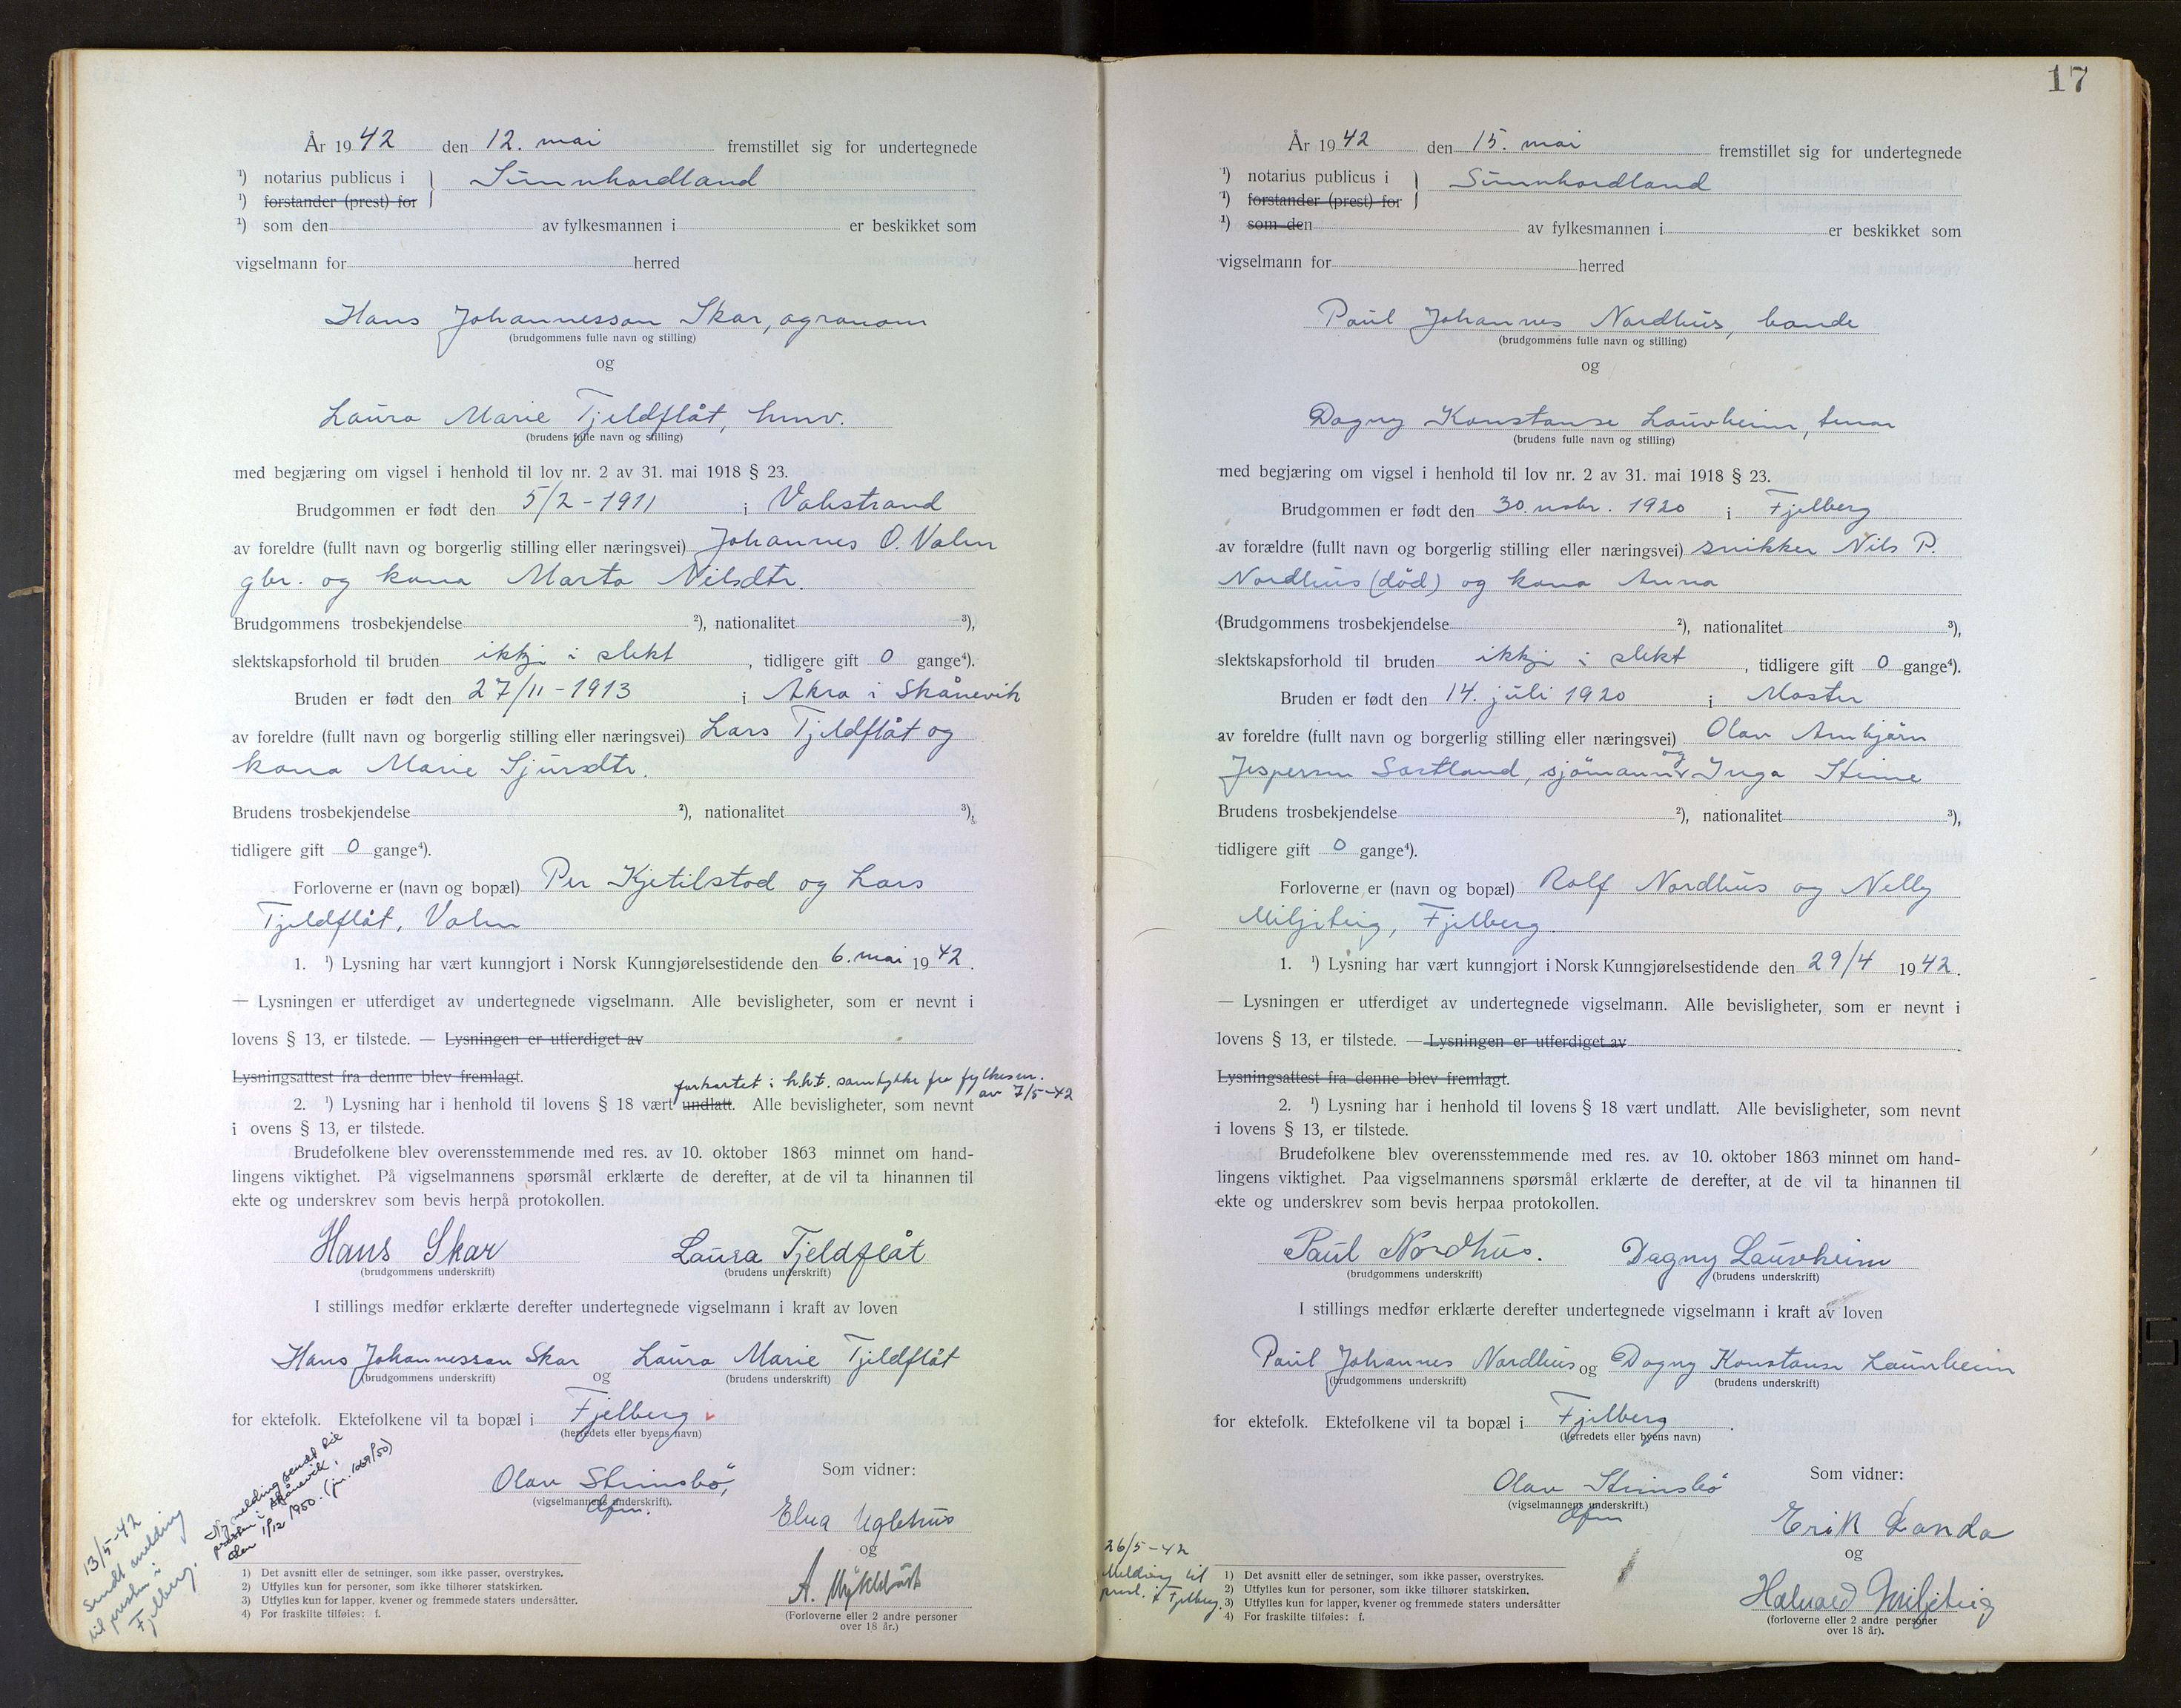 År 1942 den 12. mai fremstillet sig for undertegnede
¹) notarius publicus i } Sunnhordland
¹) forstander (prest) for
¹) som den av fylkesmannen i er beskikket som
vigselmann for herred
Hans Johannesson Skar, agronom
(brudgommens fulle navn og stilling)
og
Laura Marie Tjeldflåt, hmv.
(brudens fulle navn og stilling)
med begjæring om vigsel i henhold til lov nr. 2 av 31. mai 1918 § 23.
Brudgommen er født den 5/2 - 1911 i Vakstrand
av foreldre (fullt navn og borgerlig stilling eller næringsvei) Johannes O. Valen
gbr. og kona Marta Nilsdtr.
Brudgommens trosbekjendelse ²), nationalitet ³),
slektskapsforhold til bruden ikkje i slekt, tidligere gift 0 gange⁴).
Bruden er født den 27/11 - 1913 i Åkra i Skånevik
av foreldre (fullt navn og borgerlig stilling eller næringsvei) Lars Tjeldflåt og
kona Marie Sjursdtr.
Brudens trosbekjendelse ²), nationalitet ³),
tidligere gift 0 gange⁴).
Forloverne er (navn og bopæl) Per Kjetilstad og Lars
Tjeldflåt, Valen
1. ¹) Lysning har vært kunngjort i Norsk Kunngjørelsestidende den 6. mai 1942.
— Lysningen er utferdiget av undertegnede vigselmann. Alle bevisligheter, som er nevnt i
lovens § 13, er tilstede. — Lysningen er utferdiget av
Lysningsattest fra denne blev fremlagt.
forkortet i h.h.t. samtykke fra fylkesm.
av 7/5-42
2. ¹) Lysning har i henhold til lovens § 18 vært undlatt. Alle bevisligheter, som nevnt
i ovens § 13, er tilstede.
Brudefolkene blev overensstemmende med res. av 10. oktober 1863 minnet om hand-
lingens viktighet. På vigselmannens spørsmål erklærte de derefter, at de vil ta hinannen til
ekte og underskrev som bevis herpå protokollen.
Hans Skar Laura Tjeldflåt
(brudgommens underskrift) (brudens underskrift)
I stillings medfør erklærte derefter undertegnede vigselmann i kraft av loven
Hans Johannesson Skar og Laura Marie Tjeldflåt
(brudgommens underskrift) (brudens underskrift)
for ektefolk. Ektefolkene vil ta bopæl i Fjelberg
(herredets eller byens navn)
Ny melding sendt til
presten i Skånevik,
den 1/12 1950. (jn. 1069/50)
13/5-42
Sendt melding
til presten i
Fjelberg.
Olav Steinsbö,
(vigselmannens underskrift).
dfm.
Som vidner:
Elna Uglehus
og
A. Myklebust
(Forloverne eller 2 andre personer
over 18 år.)
1) Det avsnitt eller de setninger, som ikke passer, overstrykes.
2) Utfylles kun for personer, som ikke tilhører statskirken.
3) Utfylles kun for lapper, kvener og fremmede staters undersåtter.
4) For fraskilte tilføies: f.
17
År 1942 den 15. mai fremstillet sig for undertegnede
¹) notarius publicus i } Sunnhordland
¹) forstander (prest) for
¹) som den av fylkesmannen i er beskikket som
vigselmann for herred
Paul Johannes Nordhus, bonde
(brudgommens fulle navn og stilling)
og
Dagny Konstanse Lauvheim, tenar
(brudens fulle navn og stilling)
med begjæring om vigsel i henhold til lov nr. 2 av 31. mai 1918 § 23.
Brudgommen er født den 30. nobr. 1920 i Fjelberg
av forældre (fullt navn og borgerlig stilling eller næringsvei) snikker Nils P.
Nordhus (död) og kona Anna
(Brudgommens trosbekjendelse ²), nationalitet ³),
slektskapsforhold til bruden ikkje i slekt, tidligere gift 0 gange⁴).
Bruden er født den 14. juli 1920 i Moster
av foreldre (fullt navn og borgerlig stilling eller næringsvei) Olav Arnbjörn
Jespersen Sortland, sjömann og Inga Steine
Brudens trosbekjendelse ²), nationalitet ³),
tidligere gift 0 gange⁴).
Forloverne er (navn og bopæl) Rolf Nordhus og Nelly
Miljeteig, Fjelberg.
1. ¹) Lysning har vært kunngjort i Norsk Kunngjørelsestidende den 29/4 1942.
— Lysningen er utferdiget av undertegnede vigselmann. Alle bevisligheter, som er nevnt i
lovens § 13, er tilstede. — Lysningen er utferdiget av
Lysningsattest fra denne blev fremlagt.
2. ¹) Lysning har i henhold til lovens § 18 vært undlatt. Alle bevisligheter, som nevnt
i lovens § 13, er tilstede.
Brudefolkene blev overensstemmende med res. av 10. oktober 1863 minnet om hand-
lingens viktighet. Paa vigselmannens spørsmål erklærte de derefter, at de vil ta hinannen til
ekte og underskrev som bevis herpaa protokollen.
Paul Nordhus. Dagny Lauvheim
(brudgommens underskrift) (brudens underskrift)
I stillings medfør erklærte derefter undertegnede vigselmann i kraft av loven
Paul Johannes Nordhus og Dagny Konstanse Lauvheim
(brudgommens underskrift) (brudens underskrift)
for ektefolk. Ektefolkene vil ta bopæl i Fjelberg.
(herredets eller byens navn)
Olav Steinsbö
(vigselmannens underskrift.)
dfm
Som vidner:
Erik Landa
og
Halvard Miljeteig
(forloverne eller 2 andre personer
over 18 år).
26/5-42
Melding til
prest. i Fjelberg.
1) Det avsnitt eller de setninger, som ikke passer, overstrykes.
2) Utfylles kun for personer, som ikke tilhører statskirken.
3) Utfylles kun for lapper, kvener og fremmede staters undersåtter
4) For fraskilte tilføies: f.